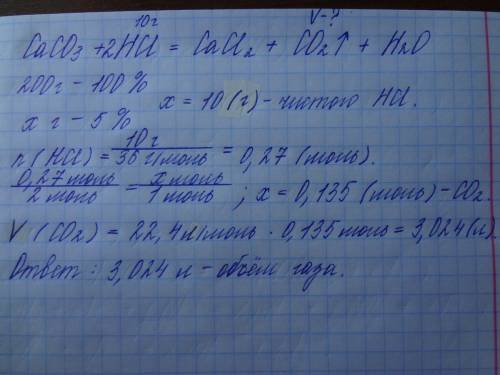 10г V-?
CaCO₃ + 2HCl = CaCl₂ + CO₂↑ + H₂O
200г - 100%
x г - 5% x = 10 (г) - чистого HCl.
n(HCl) = 10г / 36 г/моль = 0,27 (моль).
0,27 моль / 2 моль = x моль / 1 моль ; x = 0,135 (моль) - CO₂.
V (CO₂) = 22,4 л/моль · 0,135 моль = 3,024 (л).
Ответ: 3,024 л - объём газа.